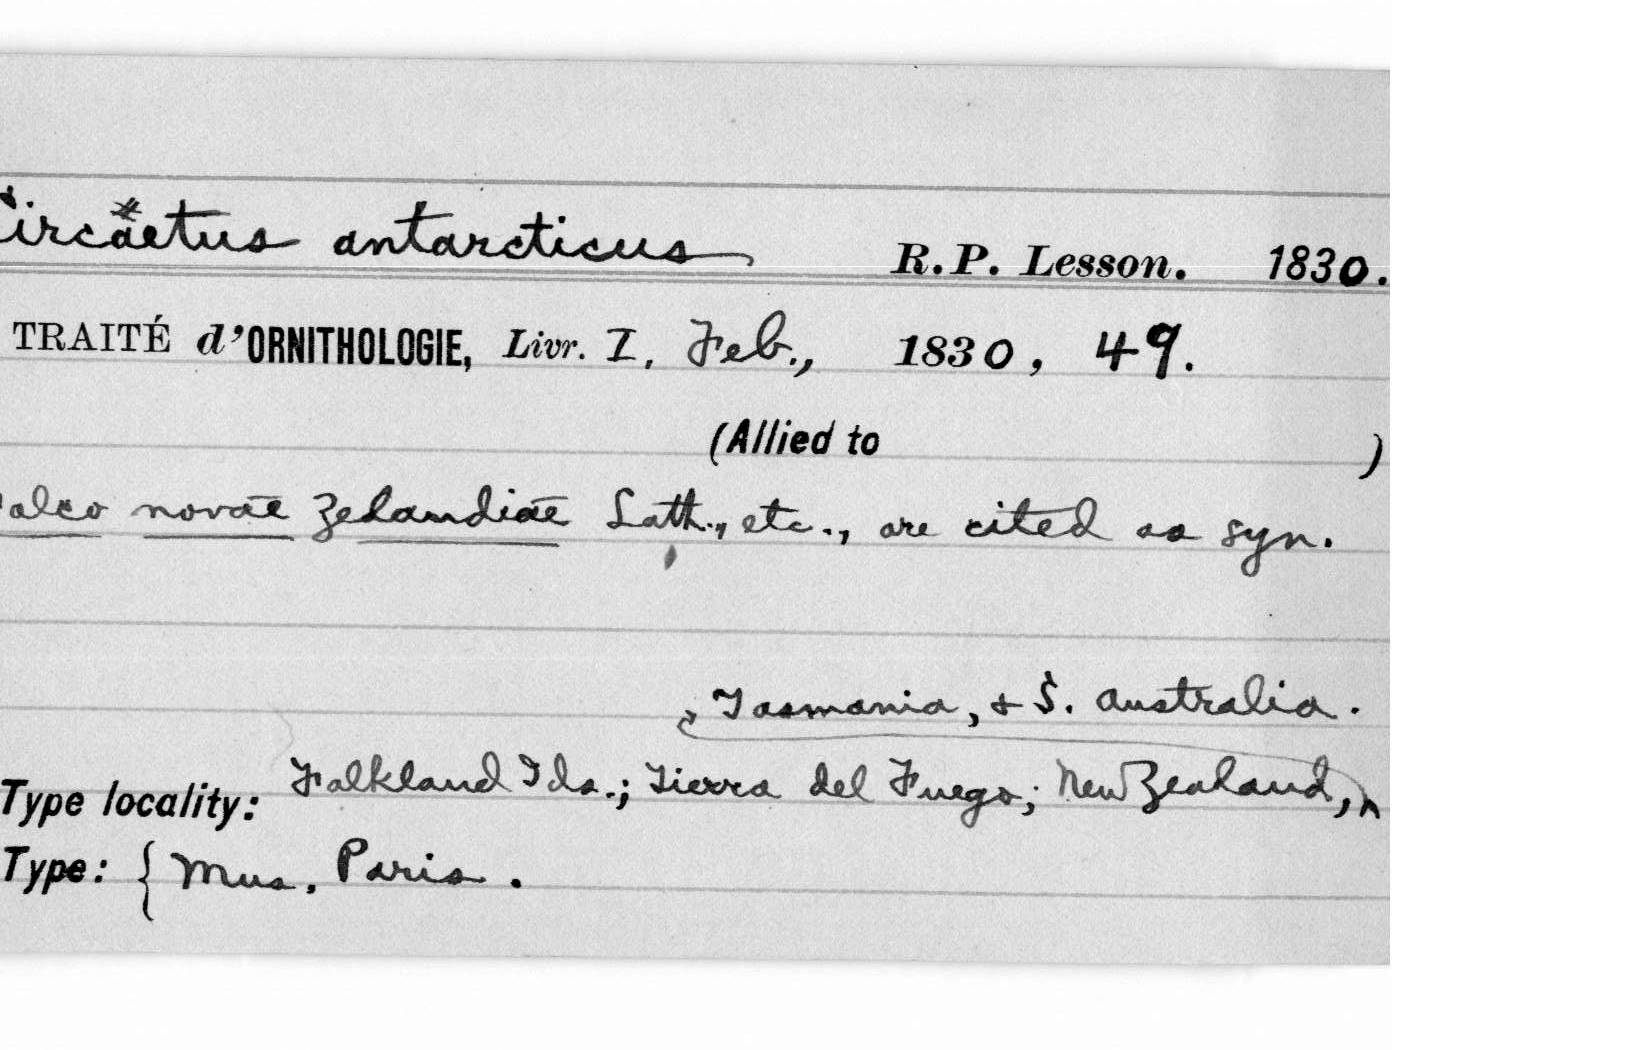 Circäetus antarcticus R.P. Lesson. 1830.
TRAITÉ d'ORNITHOLOGIE, Livr. I, Feb., 1830, 49.
(Allied to )
Falco novae Zelandiae Lath., etc., are cited as syn.
, Tasmania, & S. Australia.
Type locality: Falkland Ids.; Tierra del Fuego; New Zealand, ^
Type: { Mus. Paris.